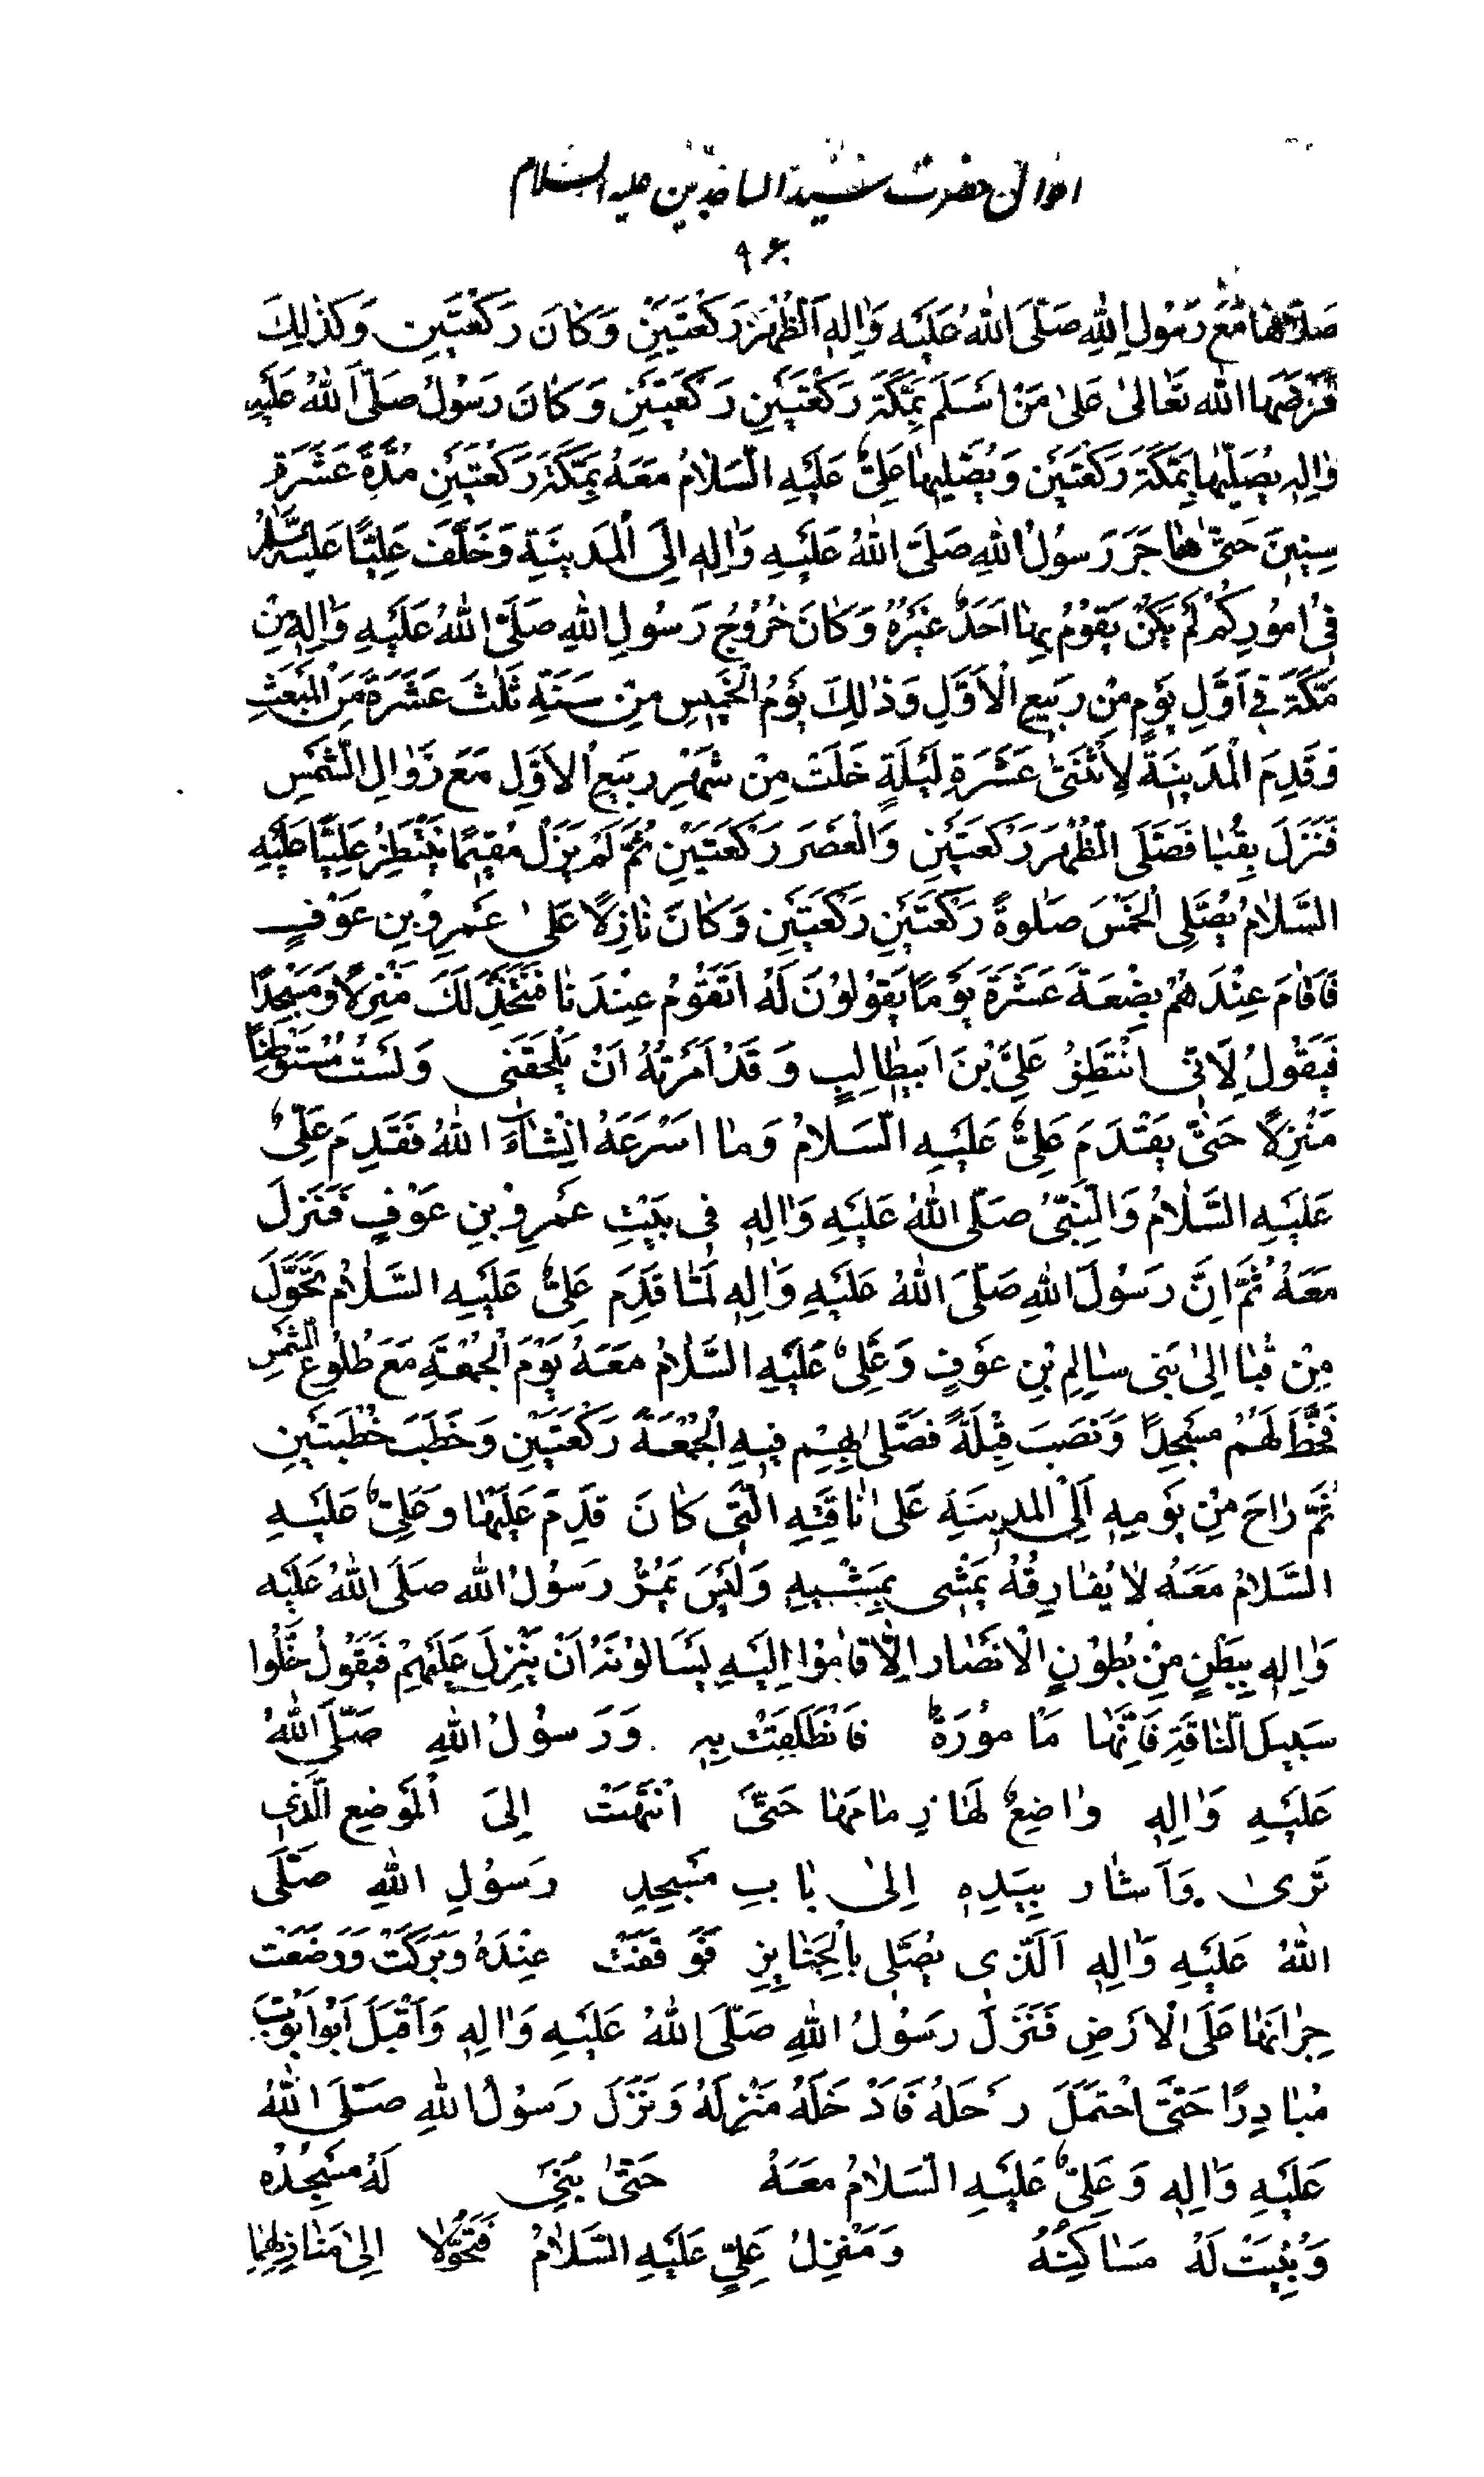 احوال حضرت سید الساجدین علیه السلام
۹۶
صَلّاها مَعَ رَسُولِ اللهِ صَلَّى اللهُ عَلَيْهِ وَاٰلِهِ اَلظُّهْرَ رَكْعَتَيْنِ وَكانَ رَكْعَتَيْنِ وَكَذٰلِكَ
فَرَضَهَا الله تَعَالىٰ عَلىٰ مَنْ اَسْلَمَ بِمَكَّةَ رَكْعَتَيْنِ رَكْعَتَيْنِ وَكانَ رَسُولُ صَلَّى اللهُ عَلَيْهِ
وَاٰلِهِ يُصَلّيها بِمَكَّةَ رَكْعَتَيْنِ وَيُصَلّيها عَلِيٌّ عَلَيْهِ السَّلامُ مَعَهُ بِمَكَّةَ رَكْعَتَيْنِ مُدَّةَ عَشَرَةِ
سِنينَ حَتّىٰ هاجَرَ رَسُولُ اللهِ صَلَّى اللهُ عَلَيْهِ وَاٰلِهِ اِلَى الْمَدينَةِ وَخَلَّفَ عَلِيًّا عَلَيْهِ السَّلامُ
فى اُمُورٍ كُمْ لَمْ يَكُنْ يَقُومُ بِها اَحَدٌ غَيْرُهُ وَكانَ خُرُوجُ رَسُولِ اللهِ صَلَّى اللهُ عَلَيْهِ وَاٰلِهِ مِنْ
مَكَّةَ فى اَوَّلِ يَوْمٍ مِنْ رَبيعِ الْاَوَّلِ وَذٰلِكَ يَوْمُ الْخَميسِ مِنْ سَنَةِ ثَلٰثَ عَشَرَةَ مِنَ الْمَبْعَثِ
وَقَدِمَ الْمَدينَةَ لِاثْنَتىٰ عَشَرَةِ لَيْلَةٍ خَلَتْ مِنْ شَهْرِ رَبيعِ الْاَوَّلِ مَعَ زَوالِ الشَّمْسِ
فَنَزَلَ بِقُبا فَصَلَّى الظُّهْرَ رَكْعَتَيْنِ وَالْعَصْرَ رَكْعَتَيْنِ ثُمَّ لَمْ يَزَلْ مُقيمًا يَنْتَظِرُ عَلِيًّا عَلَيْهِ
السَّلامُ يُصَلِّى الْخَمْسَ صَلٰوةً رَكْعَتَيْنِ رَكْعَتَيْنِ وَكانَ نازِلًا عَلىٰ عَمْرِو بْنِ عَوْفٍ
فَاَقامَ عِنْدَهُمْ بِضْعَةَ عَشَرَةَ يَوْمًا يَقُولُونَ لَهُ اَتَقُومُ عِنْدَنا فَنَتَّخِذَ لَكَ مَنْزِلًا وَمَسْجِدًا
فَيَقُولُ لا اِنّى اَنْتَظِرُ عَلِيَّ بْنَ اَبيطالِبٍ وَقَدْ اَمَرْتُهُ اَنْ يَلْحَقَنى وَلَسْتُ مُسْتَوْطِنًا
مَنْزِلًا حَتّىٰ يَقْدَمَ عَلِيٌّ عَلَيْهِ السَّلامُ وَما اَسْرَعَهُ اِنْشاءَ اللهُ فَقَدِمَ عَلِيٌّ
عَلَيْهِ السَّلامُ وَالنَّبِىُّ صَلَّى اللهُ عَلَيْهِ وَاٰلِهِ فى بَيْتِ عَمْرِو بْنِ عَوْفٍ فَنَزَلَ
مَعَهُ ثُمَّ اِنَّ رَسُولَ اللهِ صَلَّى اللهُ عَلَيْهِ وَاٰلِهِ لَمّا قَدِمَ عَلِيٌّ عَلَيْهِ السَّلامُ تَحَوَّلَ
مِنْ قُبا اِلىٰ بَنى سالِمِ بْنِ عَوْفٍ وَعَلِىٌّ عَلَيْهِ السَّلامُ مَعَهُ يَوْمَ الْجُمُعَةِ مَعَ طُلُوعِ الشَّمْسِ
فَخَطَّ لَهُمْ مَسْجِدًا وَنَصَبَ قِبْلَةً فَصَلّىٰ بِهِمْ فيهِ الْجُمُعَةَ رَكْعَتَيْنِ وَخَطَبَ خُطْبَتَيْنِ
ثُمَّ راحَ مِنْ يَوْمِهِ اِلَى الْمَدينَةِ عَلىٰ ناقَتِهِ الَّتى كانَ قَدِمَ عَلَيْها وَعَلِىٌّ عَلَيْهِ
السَّلامُ مَعَهُ لا يُفارِقُهُ يَمْشى بِمَشْيِهِ وَلَيْسَ يَمُرُّ رَسُولُ الله صَلَّى اللهُ عَلَيْهِ
وَاٰلِهِ بِبَطْنٍ مِنْ بُطُونِ الْاَنْصارِ اِلّا قامُوا اِلَيْهِ يَسْاَلُونَهُ اَنْ يَنْزِلَ عَلَيْهِمْ فَيَقُولُ خَلُّوا
سَبيلَ النّاقَةِ فَاِنَّها مَاْمُورَةٌ فَانْطَلَقَتْ بِهِ وَرَسُولُ اللهِ صَلَّى اللهُ
عَلَيْهِ وَاٰلِهِ واضِعٌ لَها زِمامَها حَتّىٰ اَنْتَهَتْ اِلىَ الْمَوْضِعِ الَّذى
تَرىٰ وَاَشارَ بِيَدِهِ اِلىٰ بابِ مَسْجِدِ رَسُولِ اللهِ صَلَّى
اللهُ عَلَيْهِ وَاٰلِهِ اَلَّذى يُصَلّى بِالْجَنايِزِ فَوَقَفَتْ عِنْدَهُ وَبَرَكَتْ وَوَضَعَتْ
جِرانَها عَلَى الْاَرْضِ فَنَزَلَ رَسُولُ اللهِ صَلَّى اللهُ عَلَيْهِ وَاٰلِهِ وَاَقْبَلَ اَبُواَيُّوبَ
مُبادِرًا حَتَّى احْتَمَلَ رَحْلَهُ فَاَدْخَلَهُ مَنْزِلَهُ وَنَزَلَ رَسُولُ اللهِ صَلَّى اللهُ
عَلَيْهِ وَاٰلِهِ وَعَلِىٌّ عَلَيْهِ السَّلامُ مَعَهُ حَتّىٰ بُنِىَ لَهُ مَسْجِدُهُ
وَبُنِيَتْ لَهُ مَساكِنُهُ وَمَنْزِلُ عَلِيٍّ عَلَيْهِ السَّلامُ فَتَحَوَّلا اِلىٰ مَنازِلِهِما